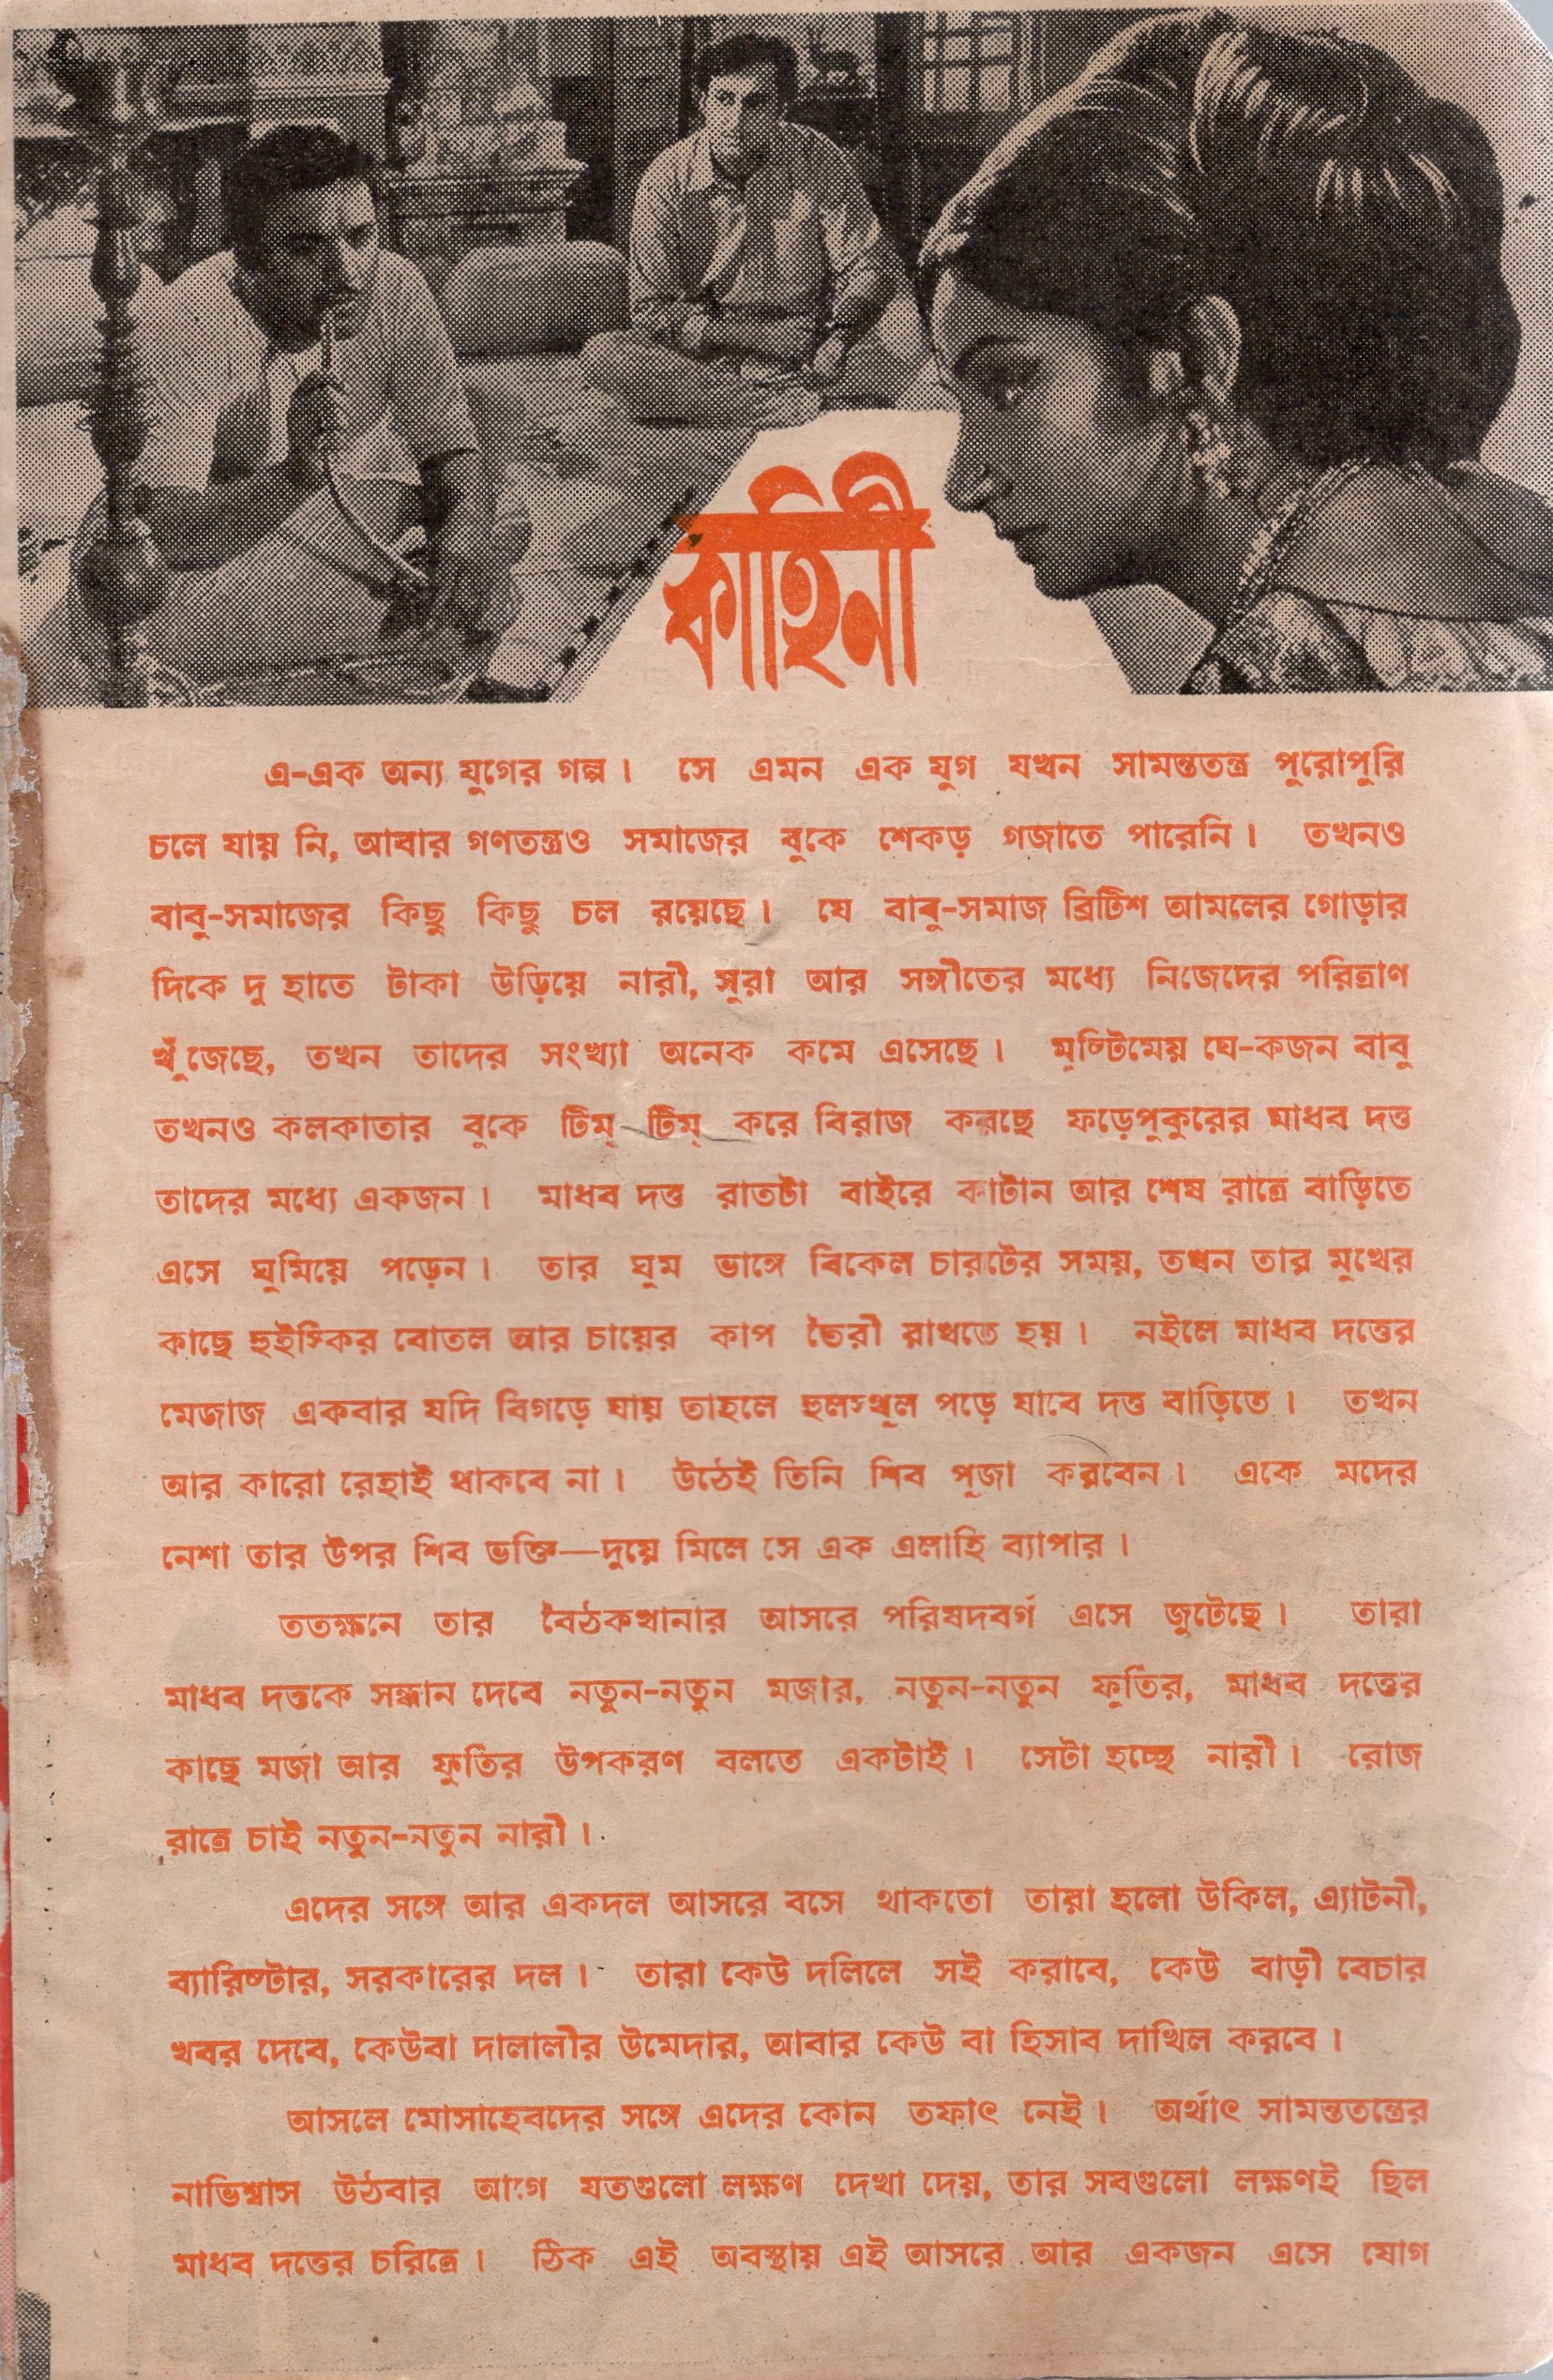 কাহিনী
এ-এক অন্য যুগের গল্প। সে এমন এক যুগ যখন সামন্ততন্ত্র পুরোপুরি
চলে যায় নি, আবার গণতন্ত্রও সমাজের বুকে শেকড় গজাতে পারেনি। তখনও
বাবু-সমাজের কিছু কিছু চল রয়েছে। যে বাবু-সমাজ ব্রিটিশ আমলের গোড়ার
দিকে দু হাতে টাকা উড়িয়ে নারী, সুরা আর সঙ্গীতের মধ্যে নিজেদের পরিত্রাণ
খুঁজেছে, তখন তাদের সংখ্যা অনেক কমে এসেছে। মুষ্টিমেয় যে-কজন বাবু
তখনও কলকাতার বুকে টিম্-টিম্ করে বিরাজ করছে ফড়েপুকুরের মাধব দত্ত
তাদের মধ্যে একজন। মাধব দত্ত রাতটা বাইরে কাটান আর শেষ রাত্রে বাড়িতে
এসে ঘুমিয়ে পড়েন। তার ঘুম ভাঙ্গে বিকেল চারটের সময়, তখন তার মুখের
কাছে হুইস্কির বোতল আর চায়ের কাপ তৈরী রাখতে হয়। নইলে মাধব দত্তের
মেজাজ একবার যদি বিগড়ে যায় তাহলে হুলস্থূল পড়ে যাবে দত্ত বাড়িতে। তখন
আর কারো রেহাই থাকবে না। উঠেই তিনি শিব পূজা করবেন। একে মদের
নেশা তার উপর শিব ভক্তি—দুয়ে মিলে সে এক এলাহি ব্যাপার।
ততক্ষনে তার বৈঠকখানার আসরে পরিষদবর্গ এসে জুটেছে। তারা
মাধব দত্তকে সন্ধান দেবে নতুন-নতুন মজার, নতুন-নতুন ফূর্তির, মাধব দত্তের
কাছে মজা আর ফূর্তির উপকরণ বলতে একটাই। সেটা হচ্ছে নারী। রোজ
রাত্রে চাই নতুন-নতুন নারী।
এদের সঙ্গে আর একদল আসরে বসে থাকতো তারা হলো উকিল, এ্যাটনী,
ব্যারিষ্টার, সরকারের দল। তারা কেউ দলিলে সই করাবে, কেউ বাড়ী বেচার
খবর দেবে, কেউবা দালালীর উমেদার, আবার কেউ বা হিসাব দাখিল করবে।
আসলে মোসাহেবদের সঙ্গে এদের কোন তফাৎ নেই। অর্থাৎ সামন্ততন্ত্রের
নাভিশ্বাস উঠবার আগে যতগুলো লক্ষণ দেখা দেয়, তার সবগুলো লক্ষণই ছিল
মাধব দত্তের চরিত্রে। ঠিক এই অবস্থায় এই আসরে আর একজন এসে যোগ